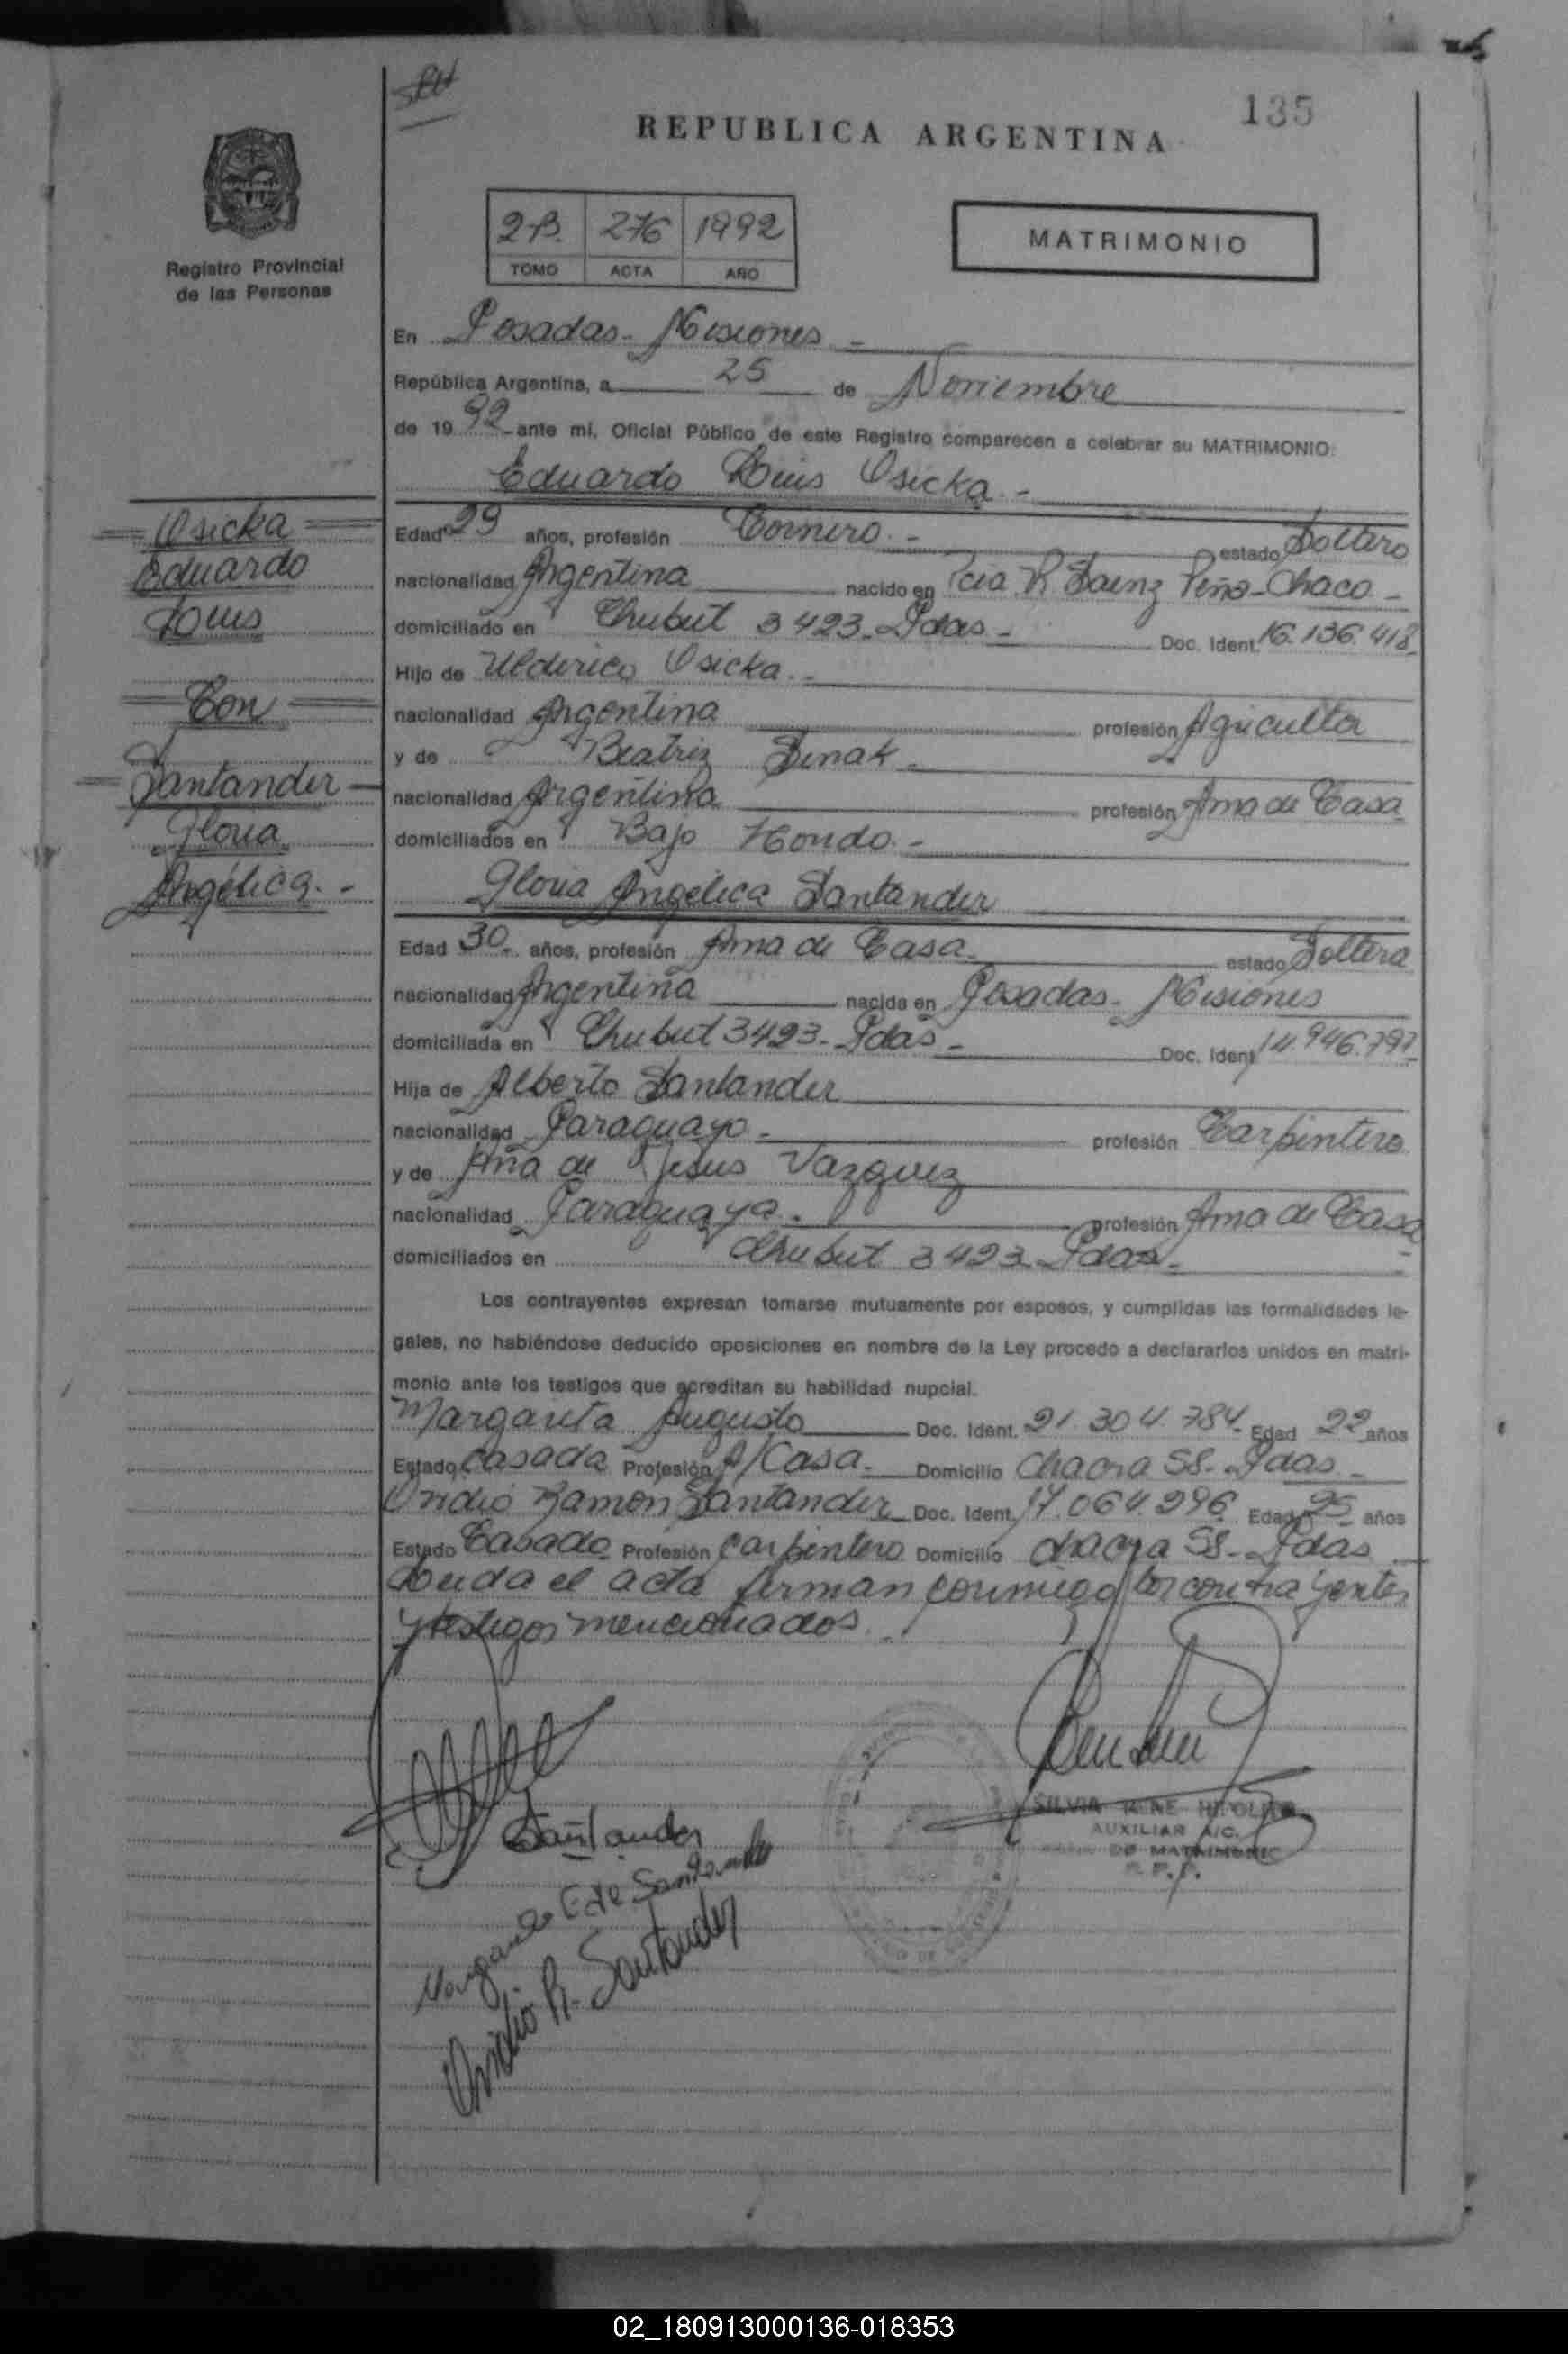 135
REPUBLICA ARGENTINA
Registro Provincial
de las Personas
2-B. 276 1992
TOMO ACTA AÑO
MATRIMONIO
En Posadas - Misiones -
República Argentina, a 25 de Noviembre
de 19 92 ante mí, Oficial Público de este Registro comparecen a celebrar su MATRIMONIO:
Eduardo Luis Osicka -
Osicka
Eduardo
Luis
Con
Santander
Gloria
Angélica. -
Edad 29 años, profesión Tornero. - estado Soltero
nacionalidad Argentina nacido en Pcia R. Saenz Peña - Chaco -
domiciliado en Chubut 3423 - Pdas - Doc. Ident. 16.136.418
Hijo de Ulderico Osicka. -
nacionalidad Argentina profesión Agricultor
y de Beatriz Simak -
nacionalidad Argentina profesión Ama de Casa
domiciliados en Bajo Hondo. -
Gloria Angélica Santander
Edad 30 años, profesión Ama de Casa - estado Soltera
nacionalidad Argentina nacida en Posadas - Misiones
domiciliada en Chubut 3423 - Pdas - Doc. Ident 14.946.797
Hija de Alberto Santander
nacionalidad Paraguayo - profesión Carpintero
y de Ana de Jesus Vazquez
nacionalidad Paraguaya - profesión Ama de Casa
domiciliados en Chubut 3423 - Pdas -
Los contrayentes expresan tomarse mutuamente por esposos, y cumplidas las formalidades le-
gales, no habiéndose deducido oposiciones en nombre de la Ley procedo a declararlos unidos en matri-
monio ante los testigos que acreditan su habilidad nupcial.
Margarita Augusto Doc. Ident. 21.304.784 Edad 22 años
Estado Casada Profesión A/Casa. Domicilio Chacra 58 - Pdas -
Ovidio Ramon Santander Doc. Ident. 17.064.296 Edad 25 años
Estado Casado Profesión Carpintero Domicilio chacra 58 - Pdas
Leida el acta firman conmigo los contrayentes
y testigos mencionados.
Santander
Margarita E de Santander
Ovidio R. Santander
SILVIA RENE HIPOLITO
AUXILIAR A/C.
DE MATRIMONIO
R. P. P.
02_180913000136-018353